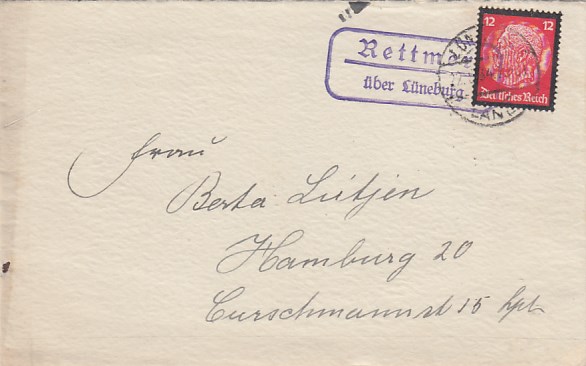 Rettm
über Lüneburg
12 12
Deutsches Reich
LÜN
LAND
Frau
Berta Lütjen
Hamburg 20
Curschmannst 15 hpt.